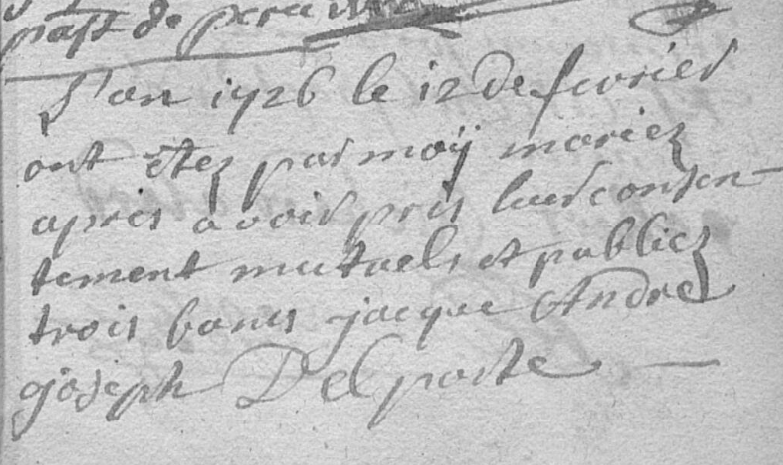 past de
L'an 1726 le 12 de fevrier
ont etez par moÿ mariez
apres avoir pris leur consen-
tement mutuels et publiez
trois bans jacque Andre
joseph Delporte